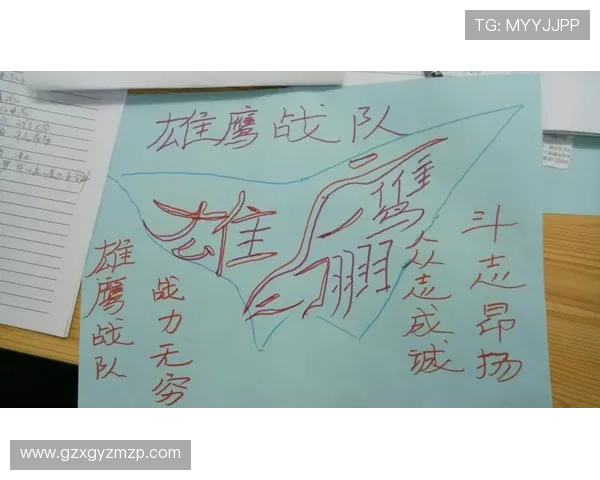 TG: MYYJJPP
雄鹰战队
雄鹰
雄鹰战队
战力无穷
众志成诚
斗志昂扬
www.gzxgyzmzp.com